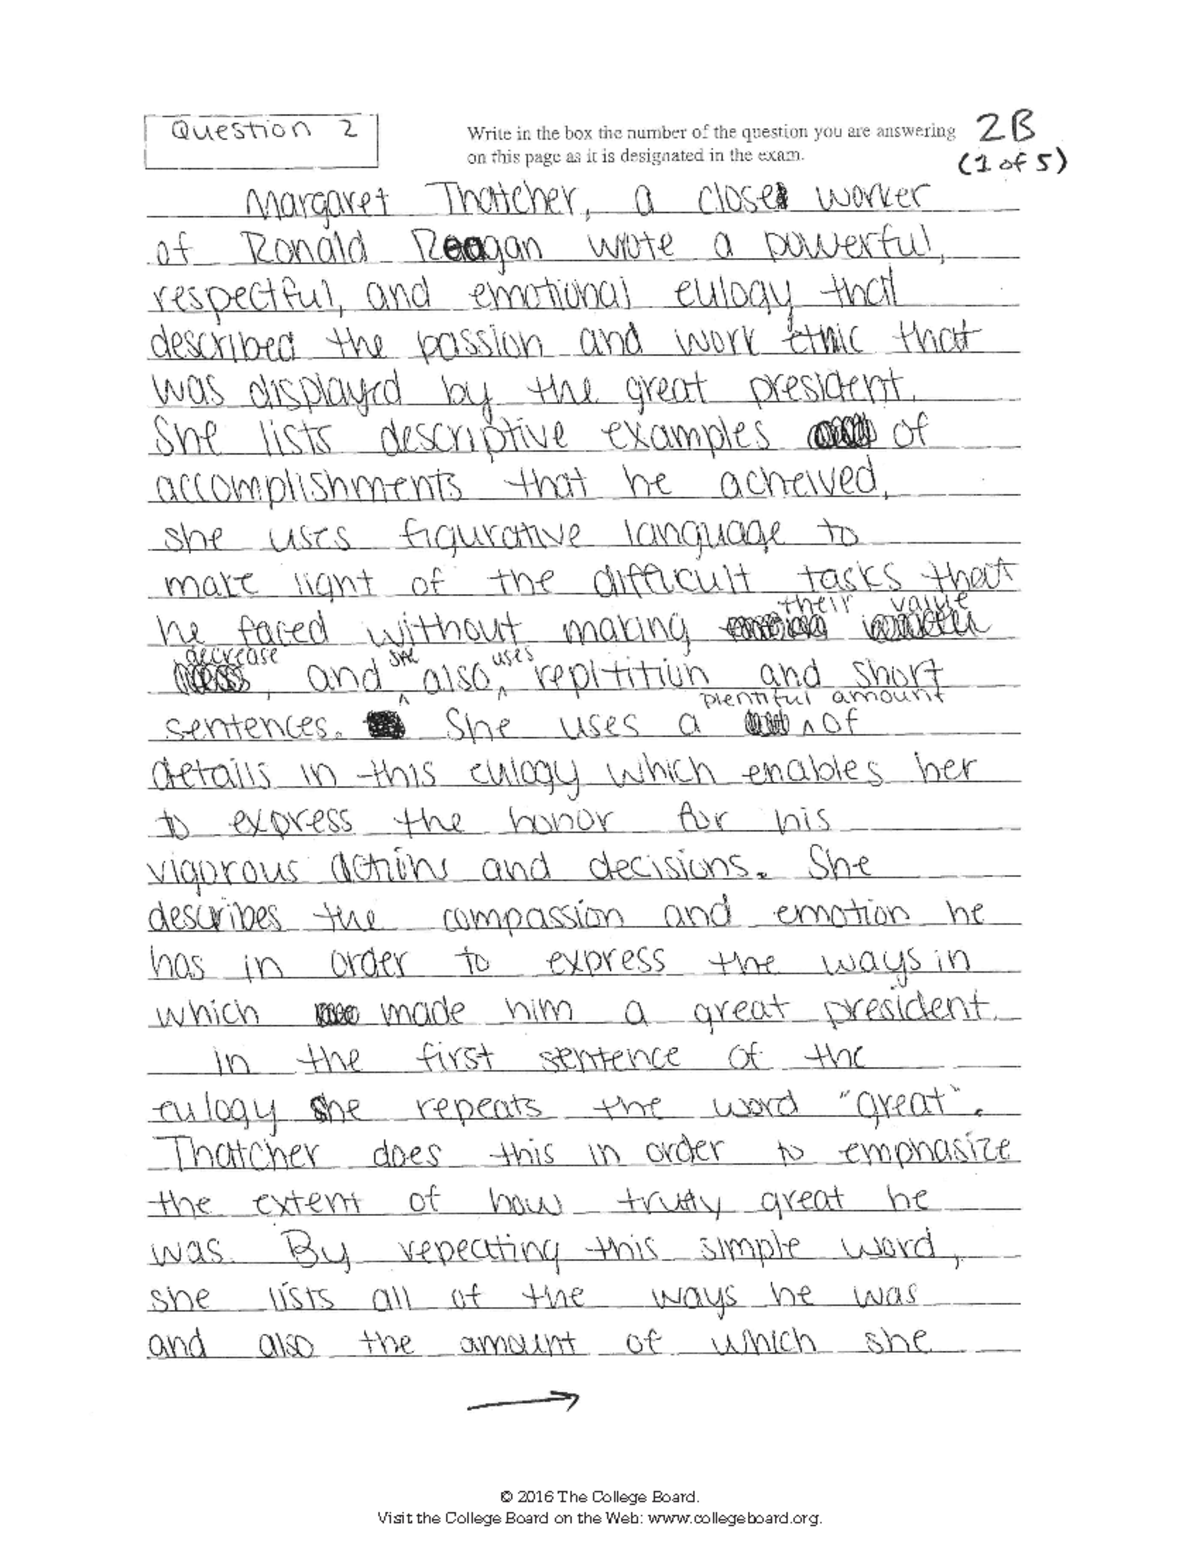 Question 2
Write in the box the number of the question you are answering
on this page as it is designated in the exam.
2B
(1 of 5)
Margaret Thatcher, a close worker
of Ronald Reagan wrote a powerful,
respectful, and emotional eulogy that
described the passion and work ethic that
was displayed by the great president.
She lists descriptive examples of
accomplishments that he acheived,
she uses figurative language to
make light of the difficult tasks that
he faced without making their value
decrease, and she also uses repitition and short
sentences. She uses a plentiful amount of
details in this eulogy which enables her
to express the honor for his
vigorous actions and decisions. She
describes the compassion and emotion he
has in order to express the ways in
which made him a great president.
In the first sentence of the
eulogy she repeats the word "great".
Thatcher does this in order to emphasize
the extent of how truly great he
was. By repeating this simple word,
she lists all of the ways he was
and also the amount of which she
© 2016 The College Board.
Visit the College Board on the Web: www.collegeboard.org.